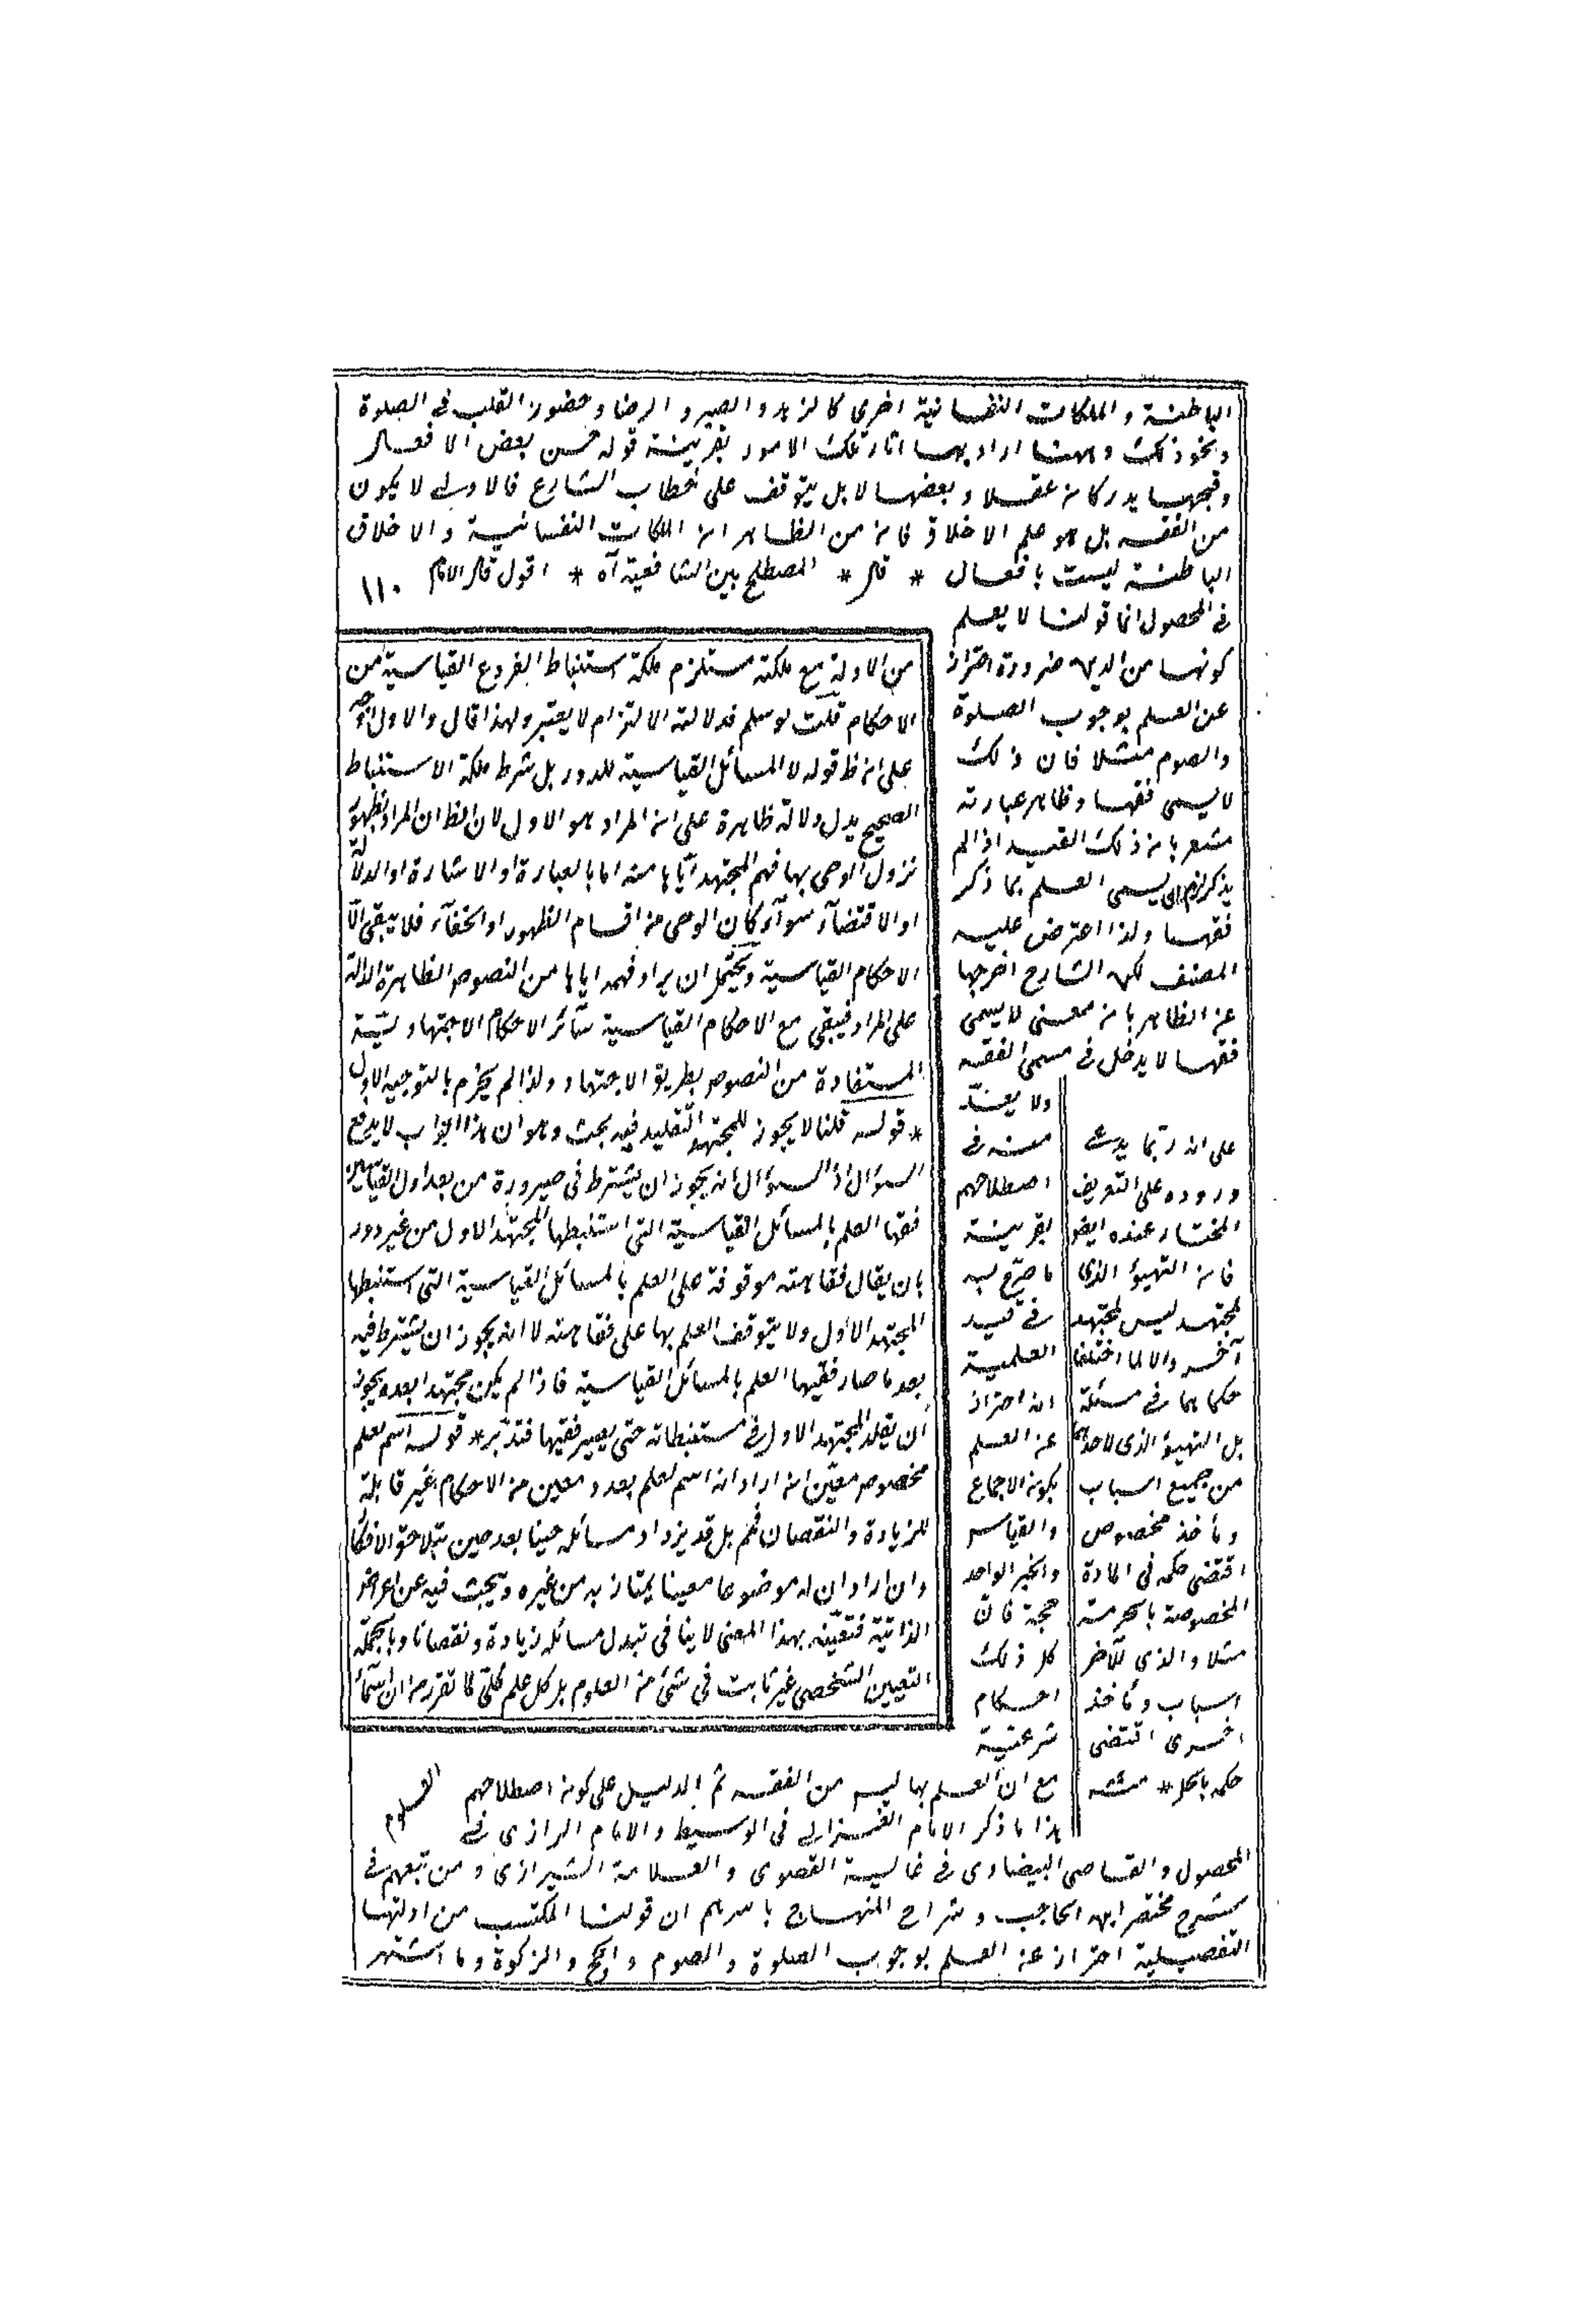 الباطنة والملكات النفسانية اخرى كالزهد والصبر والرضا وحضور القلب فى الصلوة
ونحو ذلك وههنا اراد بهما اثار تلك الامور بقرينة قوله حسن بعض الافعال
وقبحها يدركانه عقلا وبعضها لا بل يتوقف على خطاب الشارع فالاولى لا يكون
من الفقه بل هو علم الاخلاق فانه من الظاهر ان الملكات النفسانية والاخلاق
الباطنة ليست بافعال * قال * المصطلح بين الشافعية آه * اقول قال الامام ١١٠
فى المحصول انما قولنا لا يعلم
كونها من الدين ضرورة احتراز
عن العلم بوجوب الصلوة
والصوم مثلا فان ذلك
لا يسمى فقها وظاهر عبارته
مشعر بان ذلك القيد اذا لم
يذكر لزم ان يسمى العلم بما ذكر
فقها ولذا اعترض عليه
المصنف لكن الشارح اخرجها
عن الظاهر بان معنى لا يسمى
فقها لا يدخل فى مسمى الفقه
ولا يعدّ
منه فى
اصطلاحهم
بقرينة
ما صرّح به
فى قيد
العلمية
انه احتراز
عن العلم
بكون الاجماع
والقياس
والخبر الواحد
حجة فانّ
كل ذلك
احكام
شرعية
مع ان العلم بها ليس من الفقه ثم الدليل على كونه اصطلاحهم
هذا ما ذكر الامام الغزالى فى الوسيط والامام الرازى فى
المحصول والقاضى البيضاوى فى غاية القصوى والعلامة الشيرازى ومن تبعهم فى
شرح مختصر ابن الحاجب وشراح المنهاج باسرهم ان قولنا المكتسب من ادلتها
التفصيلية احتراز عن العلم بوجوب الصلوة والصوم والحج والزكوة وما اشتهر
على انه ربّما يدعى
وروده على التعريف
المختار عنده ايضا
فان التهيؤ الذى
لمجتهد ليس لمجتهد
آخر والا لما اختلفا
حكماهما فى مسئلة
بل التهيؤ الذى لاحدهما
من جميع اسباب
ومأخذ مخصوص
اقتضى حكمه فى المادة
المخصوصة بالحرمة
مثلا والذى للآخر
اسباب ومأخذ
اخرى اقتضى
حكمه بالحل * منه
من الادلة مع ملكته مستلزم ملكة استنباط الفروع القياسية من
الاحكام قلت لو سلم فدلالة الالتزام لا يعتبر ولهذا قال والاول اوجه
على ان ظ قوله لا المسائل القياسية للدور بل شرط ملكة الاستنباط
الصحيح يدل دلالة ظاهرة على ان المراد هو الاول لان الظ ان المراد بظهور
نزول الوحى بها فهم المجتهد ايّاها منه اما بالعبارة او الاشارة او الدلالة
او الاقتضاء سواء كان الوحى من اقسام الظهور او الخفاء فلا يبقى الّا
الاحكام القياسية ويحتمل ان يراد فهمه اياها من النصوص الظاهرة الدالة
على المراد فيبقى مع الاحكام القياسية سائر الاحكام الاجتهادية
المستفادة من النصوص بطريق الاجتهاد ولذا لم يجزم بالتوجيه الاول
* قوله قلنا لا يجوز للمجتهد التقليد فيه بحث وهو ان هذا الجواب لا يدفع
السؤال اذ السؤال انه يجوز ان يشترط فى صيرورة من بعد اول القياسين
فقها العلم بالمسائل القياسية التى استنبطها المجتهد الاول من غير دور
بان يقال فقاهته موقوفة على العلم بالمسائل القياسية التى استنبطها
المجتهد الاول ولا يتوقف العلم بها على فقاهته لا انه يجوز ان يشترط فيه
بعد ما صار فقيها العلم بالمسائل القياسية فاذا لم يكن مجتهدا بعد يجوز
ان يقلد المجتهد الاول فى مستنبطاته حتى يصير فقيها فتدبّر * قوله اسم لعلم
مخصوص معيّن ان اراد انه اسم لعلم بعدد معين من الاحكام غير قابلة
للزيادة والنقصان فمم بل قد يزداد مسائله حينا بعد حين بتلاحق الافكار
وان اراد ان له موضوعا معينا يمتاز به من غيره ويبحث فيه عن اعراضه
الذاتية فتعيّنه بهذا المعنى لا ينافى تبدل مسائله زيادة ونقصانا وبالجملة
التعيين الشخصى غير ثابت فى شئ من العلوم بل كل علم كلّى لما تقرر من ان اسماء
العلوم